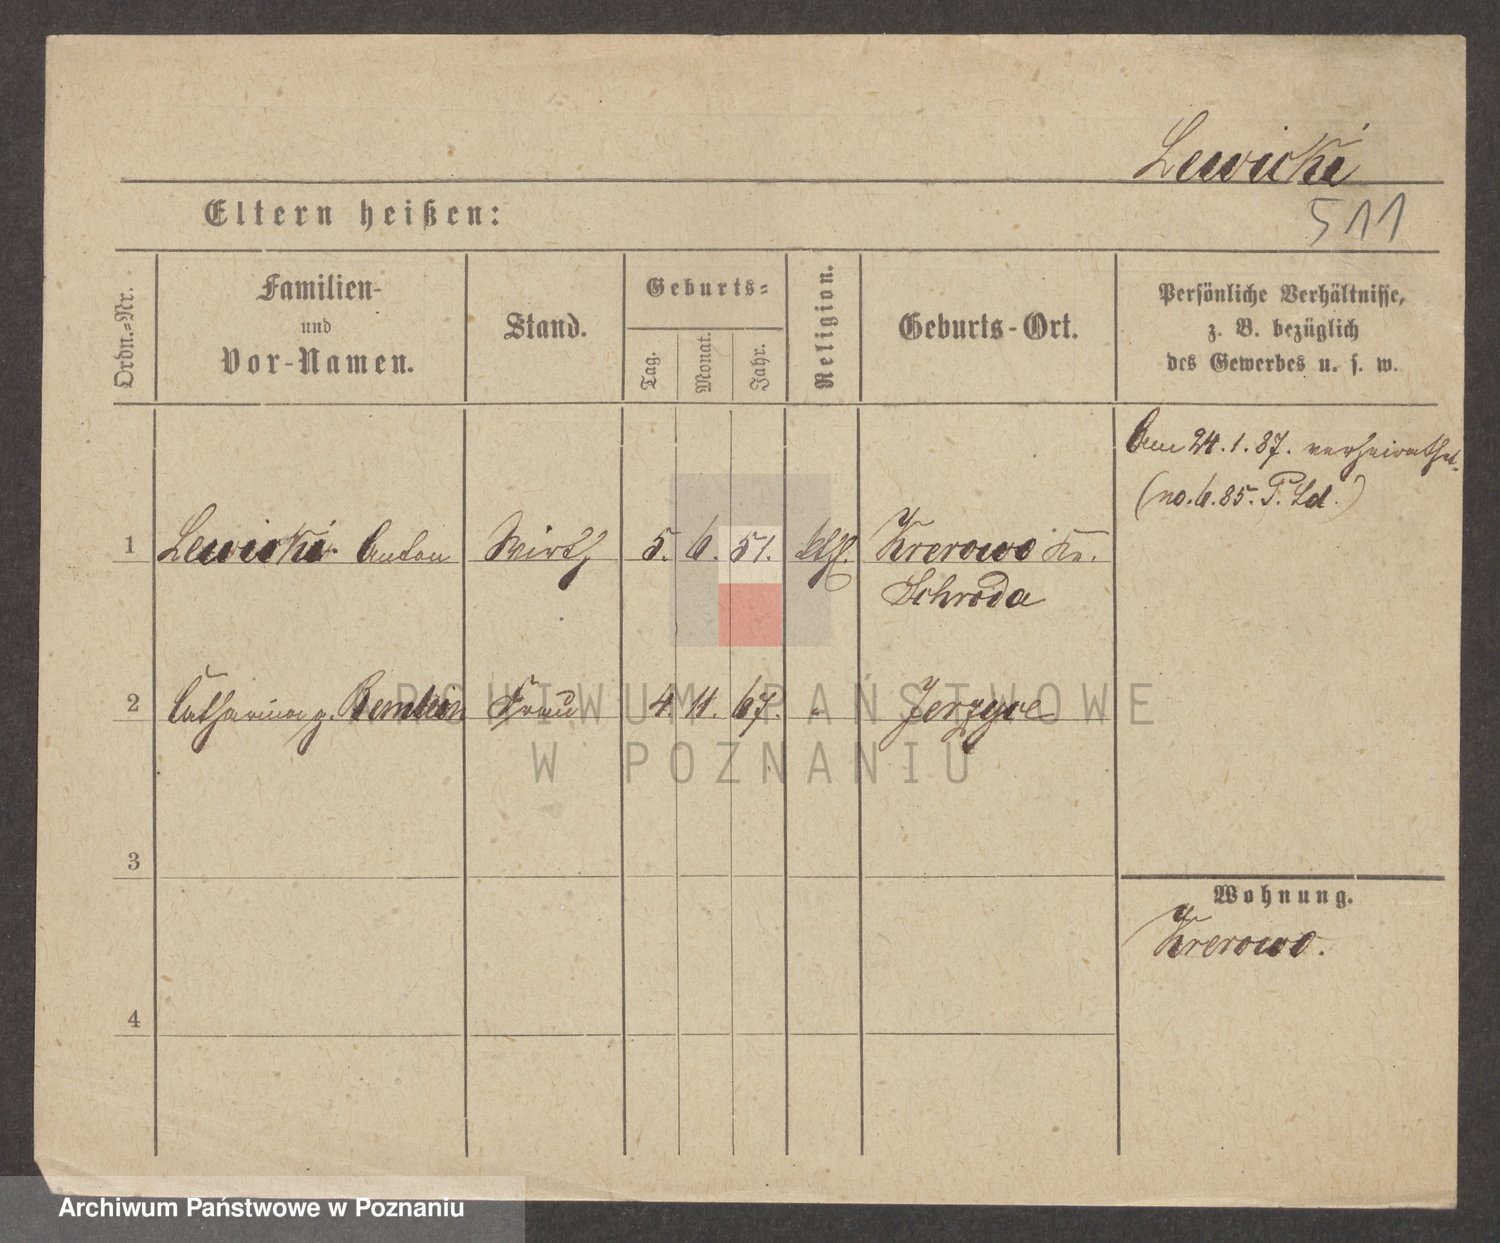 Lewicki
511
Eltern heißen:
Ordn.=Nr.
Familien-
und
Vor-Namen.
Stand.
Geburts=
Tag.
Monat.
Jahr.
Religion.
Geburts-Ort.
Persönliche Verhältnisse,
z. B. bezüglich
des Gewerbes u. s. w.
Am 24.1.87. verheirathet.
(no. 6.85. P. Ld.)
1 Lewicki Anton Wirth 5. 6. 51. kth. Krerowo Kr.
Schroda
2 Catharina g. Frau 4. 11. 67. " Jerzyce
ARCHIWUM PAŃSTWOWE
W POZNANIU
3
Wohnung.
Krerowo.
4
Archiwum Państwowe w Poznaniu